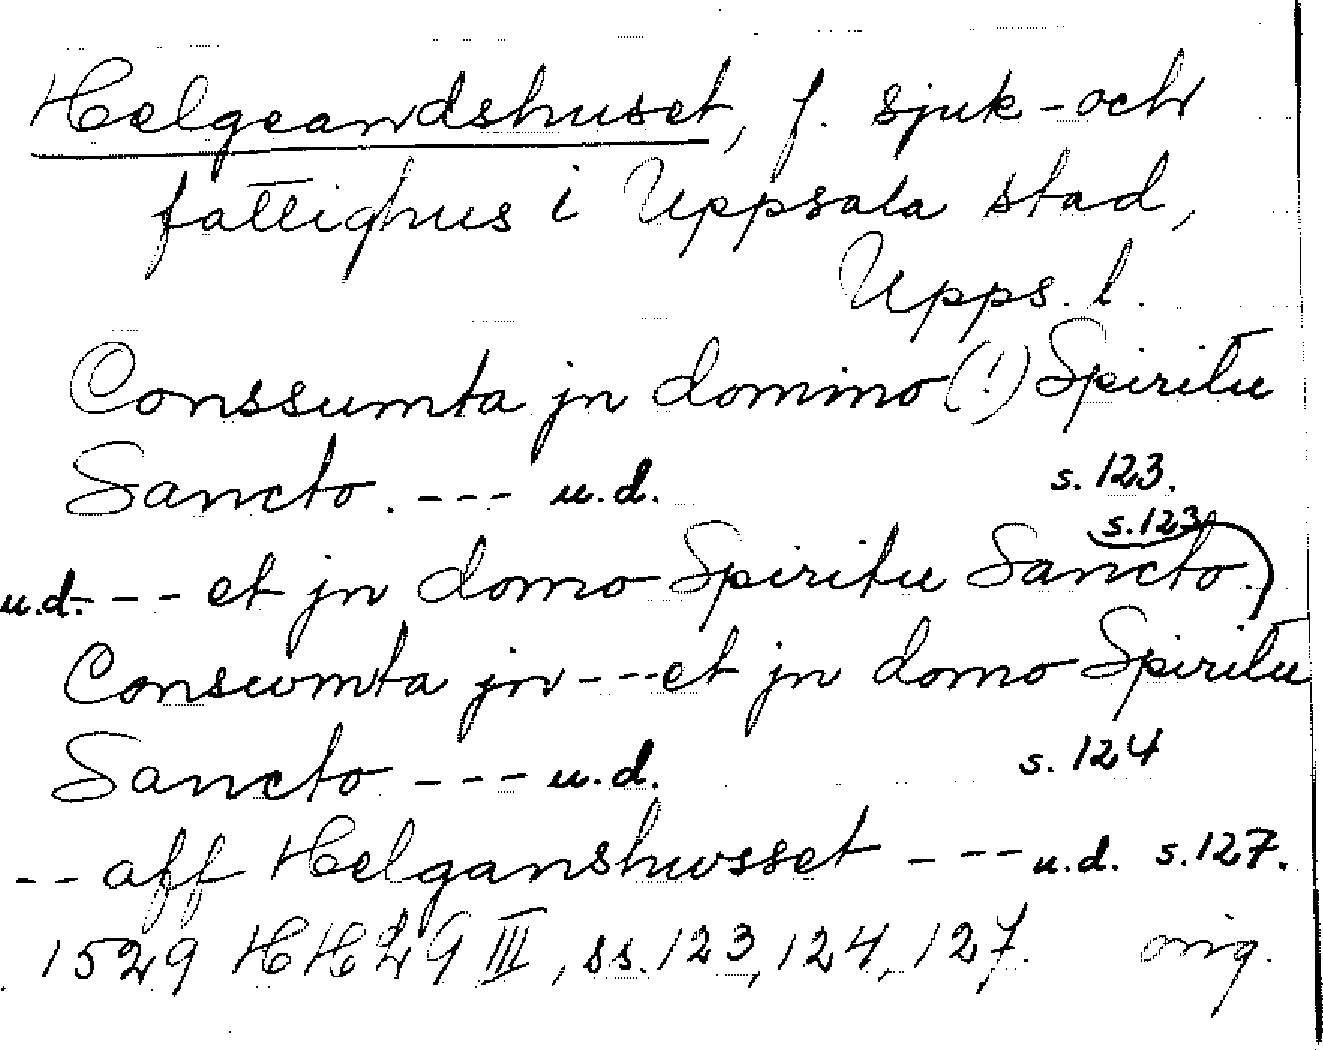 Helgeandshuset, f. sjuk- och
fattighus i Uppsala stad,
Upps. l.
Conssumta jn domino (!) Spiritu
Sancto. --- u.d. s. 123.
s. 123
u.d. --- et jn domo Spiritu Sancto.)
Consumta jn --- et jn domo Spiritu
Sancto --- u.d. s. 124
-- aff Helganshusset --- u.d. s. 127.
1529 HH 29 III, ss. 123, 124, 127. orig.